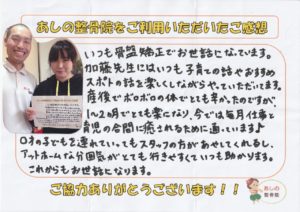 あしの整骨院をご利用いただいたご感想
いつも骨盤矯正でお世話になっています。
加藤先生にはいつも子育ての話やおすすめ
スポットの話を楽しくしながらやっていただいてます。
産後でボロボロの体でとても辛かったのですが、
1〜2ヵ月でとても楽になり、今では毎月仕事と
育児の合間に癒されるために通っています♪
0才の子ども2連れていってもスタッフの方があやしてくれるし、
アットホームな分囲気がとても行きやすくていつも助かります。
これからもお世話になります。
あしの整骨院
ご協力ありがとうございます！！